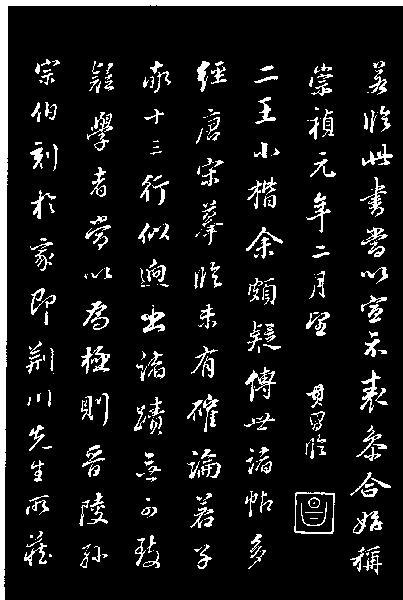 若臨此書當以宣示表參合始稱
崇禎元年二月望 其昌臨
二王小楷余頗疑傳世諸帖多
經唐宋摹臨未有確論若子
敬十三行似迥出諸蹟無可致
疑學者當以為極則晉陵孫
宗伯刻於家即荊川先生所藏